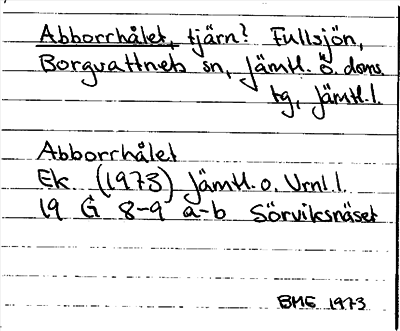 Abborrhålet, tjärn? Fullsjön,
Borgvattnets sn, Jämtl. ö. doms.
tg, Jämtl. l.
Abborrhålet
Ek (1973) Jämtl. o. Vrnl. l.
19 G 8-9 a-b Sörviksnäset
BME 1973